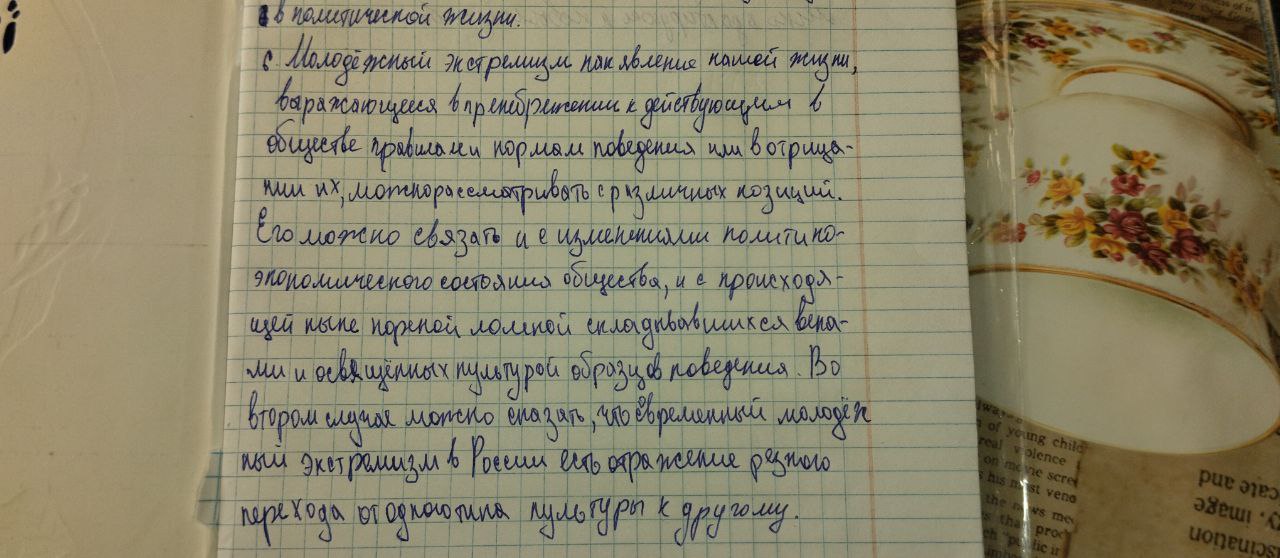 в политической жизни.
с. Молодёжный экстремизм как явление нашей жизни,
выражающееся в пренебрежении к действующим в
обществе правилам и нормам поведения или в отрица-
нии их, можно рассматривать с различных позиций.
Его можно связать и с изменениями политико-
экономического состояния общества, и с происходя-
щей ныне коренной ломкой складывавшихся века-
ми и освящённых культурой образцов поведения. Во
втором случае можно сказать, что современный молодёж
ный экстремизм в России есть отражение резкого
перехода от одного типа культуры к другому.
of young child
real violence
on movie scre
his most veno
the news me
cate and
image
scination